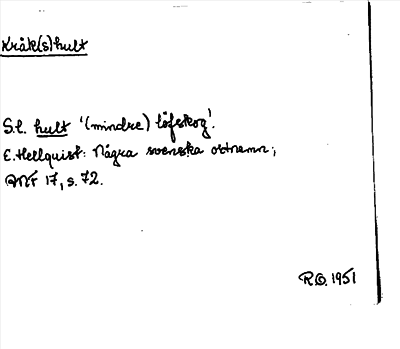 Kråk(s)hult
S.l. hult '(mindre) löfskog'.
E. Hellquist: Några svenska ortnamn;
ANF 17, s. 72.
R.O. 1951